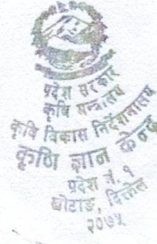 प्रदेश सरकार
कृषि मन्त्रालय
कृषि विकास निर्देशनालय
कृषि ज्ञान केन्द्र
प्रदेश नं. १
खोटाङ, दिक्तेल
२०७५